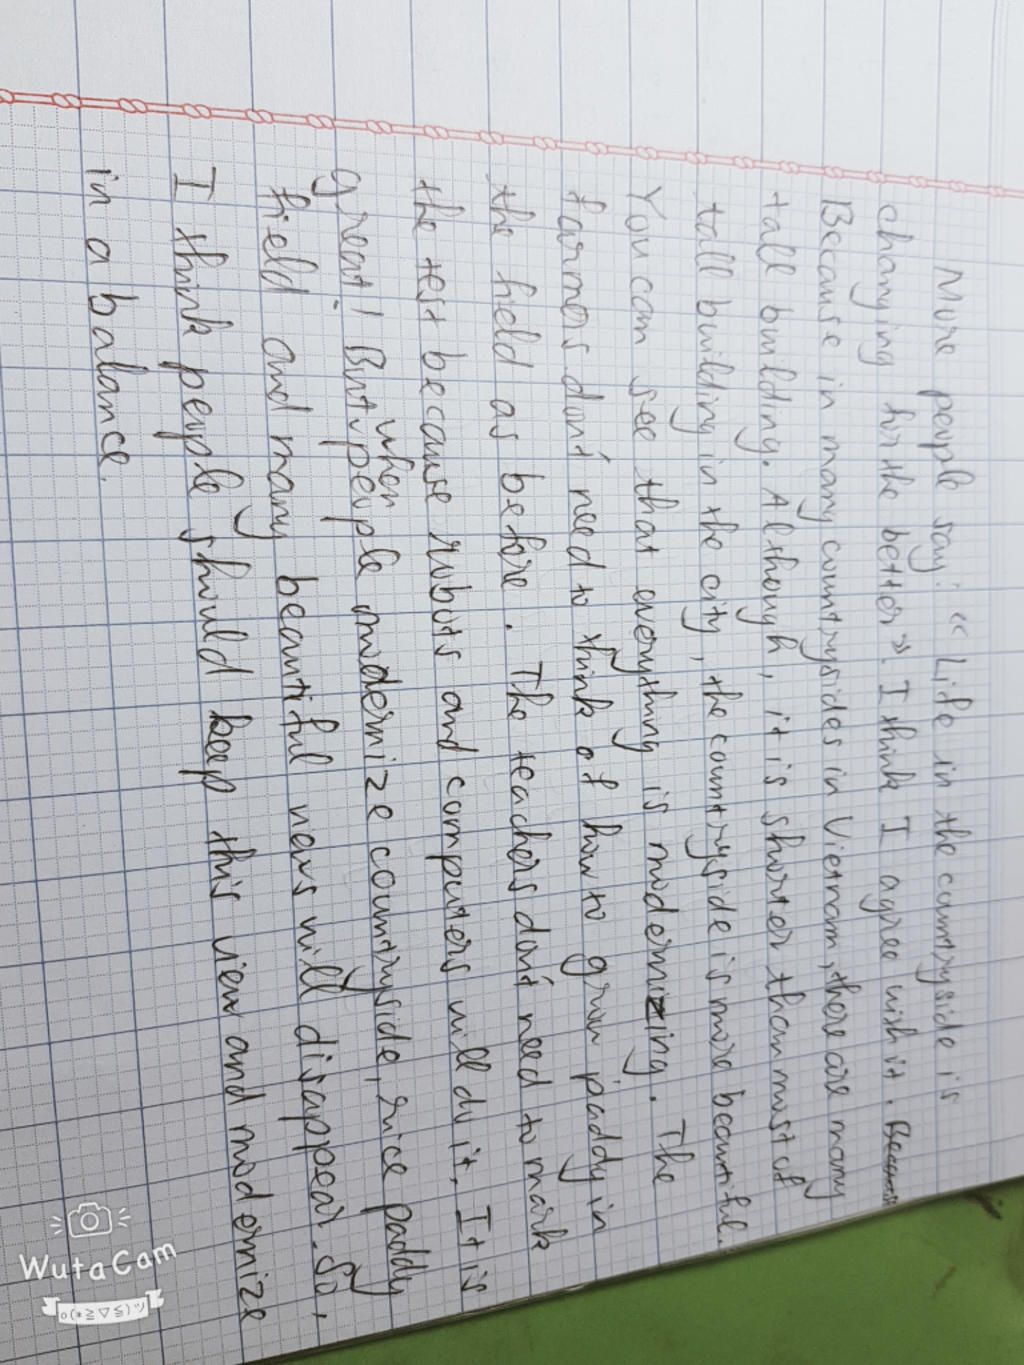 More people say: "Life in the countryside is
changing for the better". I think I agree with it.
Because in many countrysides in Vietnam, there are many
tall building. Although, it is shorter than most of
tall building in the city, the countryside is more beautiful.
You can see that everything is modernizing. The
farmers don't need to think of how to grow paddy in
the field as before. The teachers don't need to mark
the test because robots and computers will do it. It is
great! But when people modernize countryside, rice paddy
field and many beautiful news will disappear. So,
I think people should keep this view and modernize
in a balance.
WutaCam
o(*≧▽≦)ツ